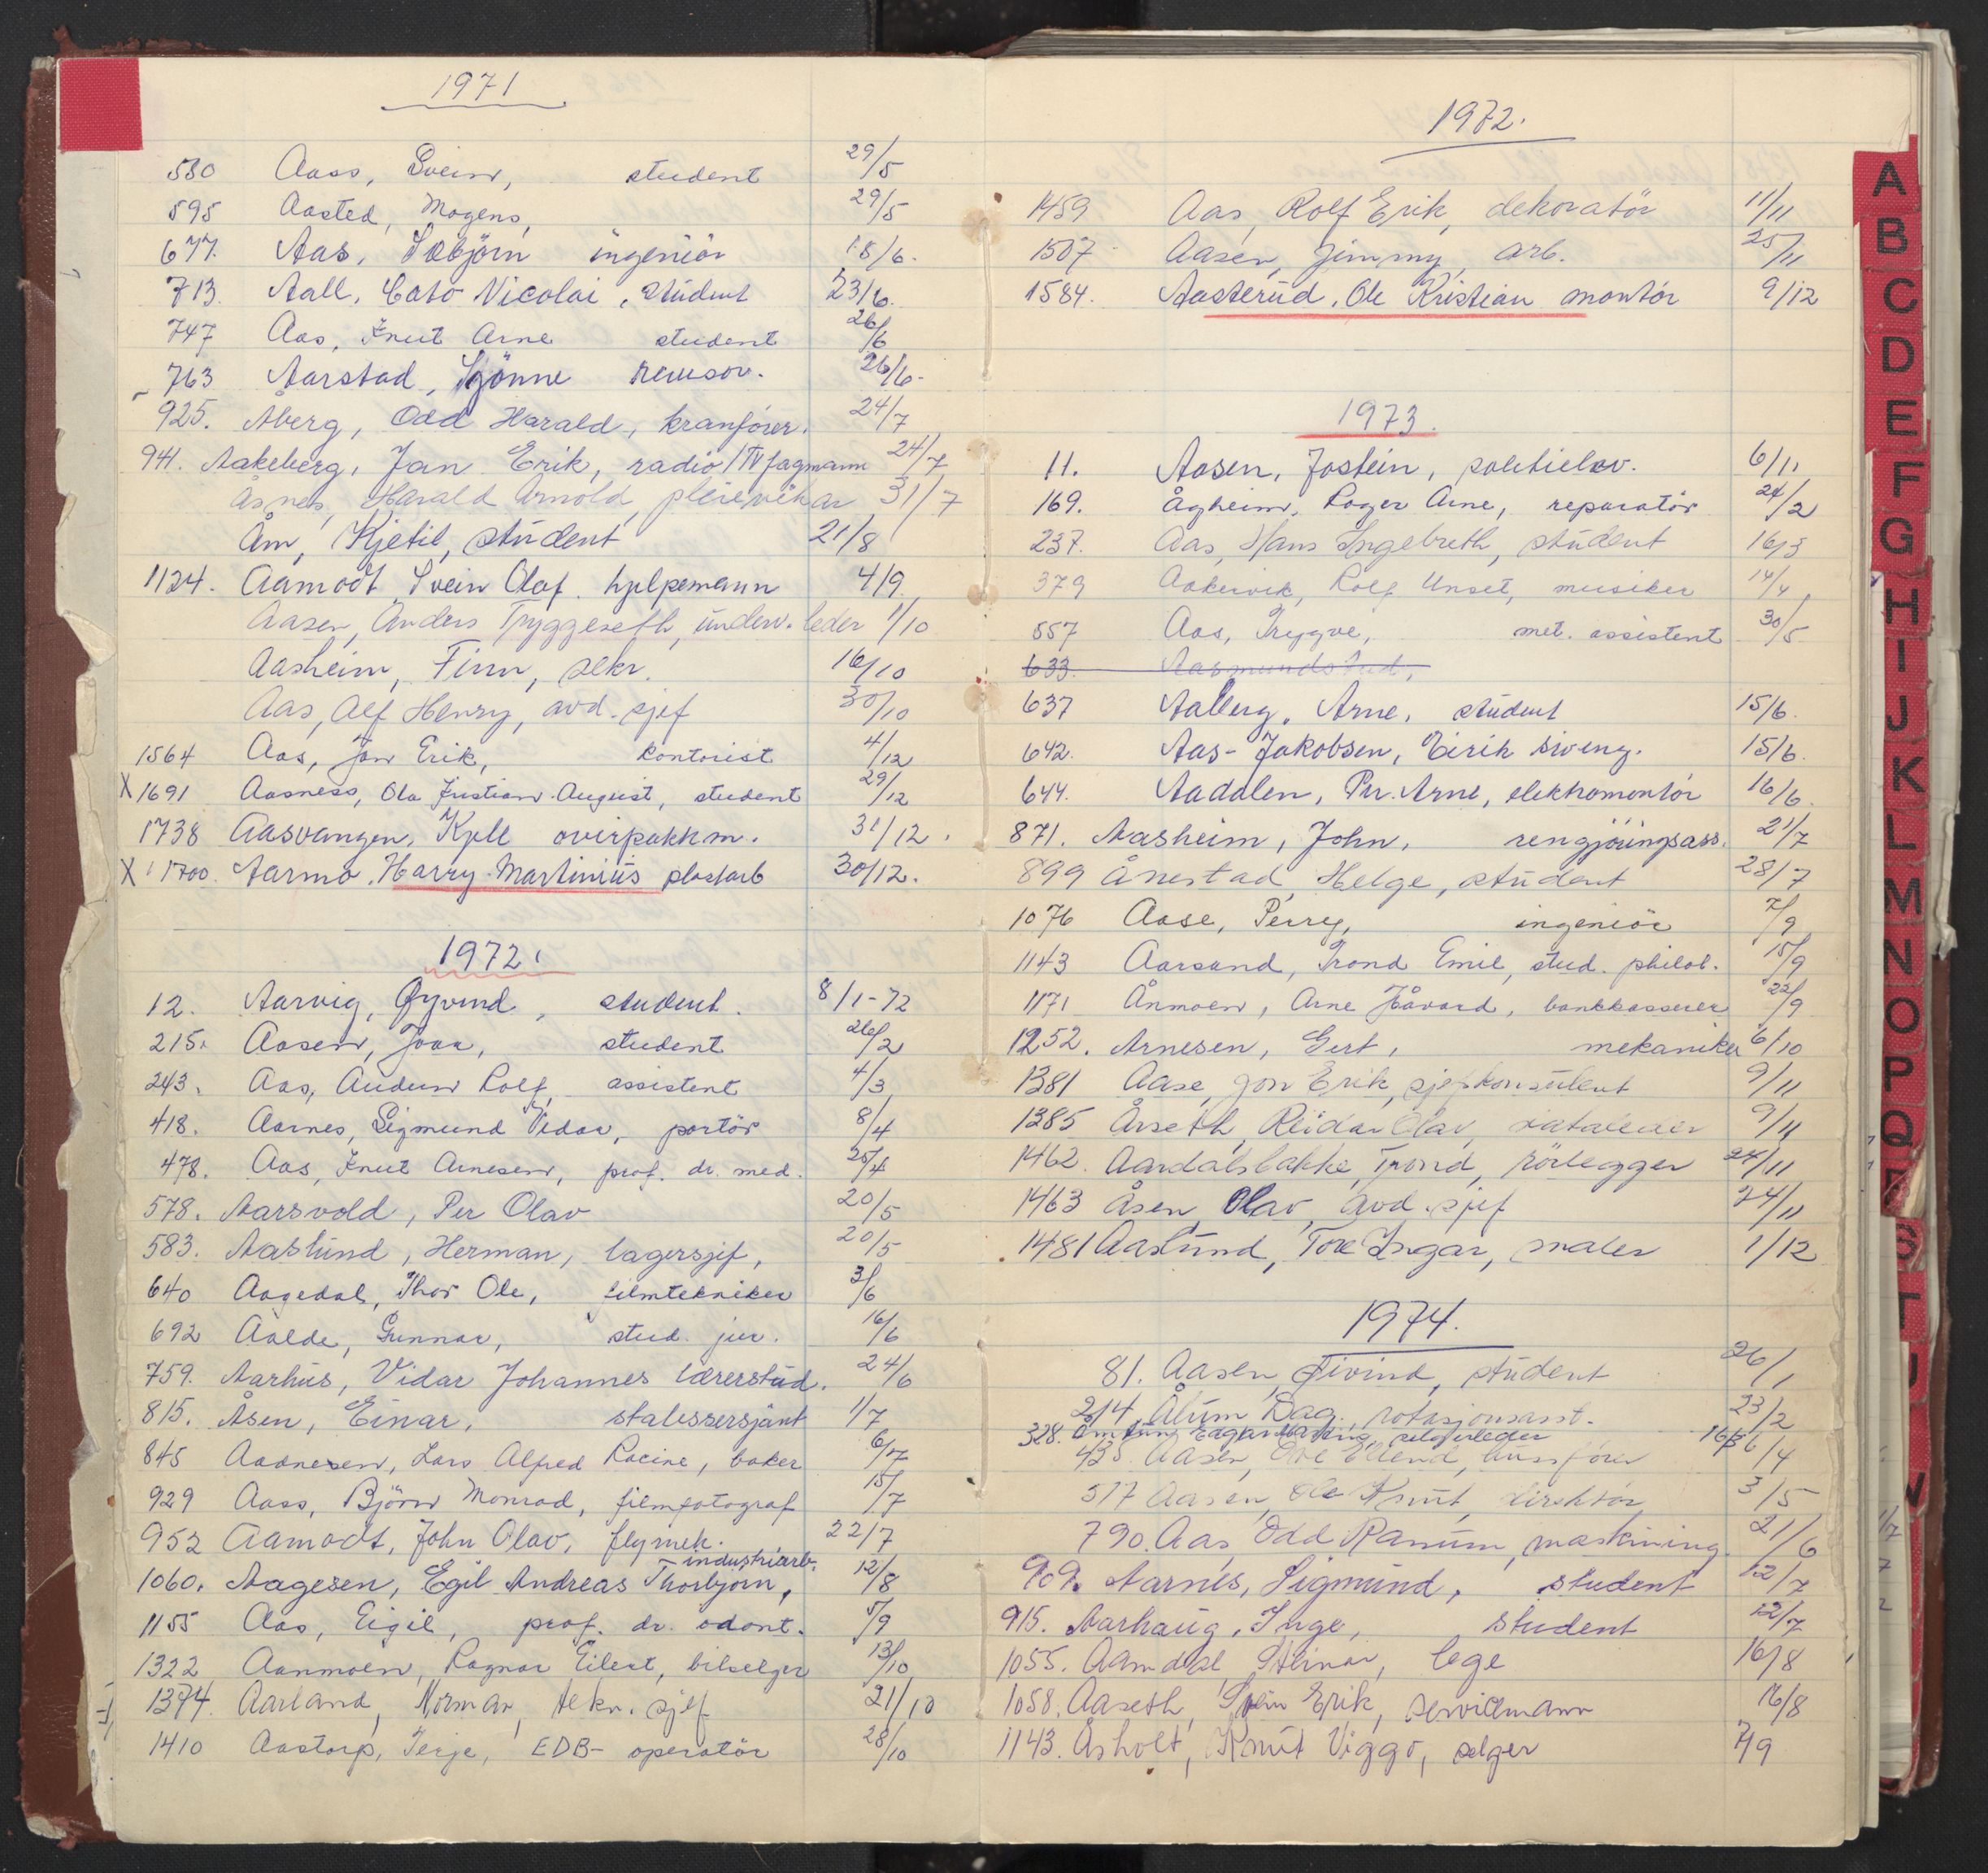 1971
580 Aass, Svein, student 29/5
595 Aasted, Mogens, 29/5
677. Aas, Iebjörn ingeniör 18/6.
713. Aall, Cato Nicolai, student 23/6.
747 Aas, Knut Arne student 26/6
763 Aarstad, Stjönne revisor. 26/6.
925. Åberg, Odd Harald, kranförer. 24/7
941. Aakeberg, Jan Erik, radio/TV fagmann 24/7
Åsnes, Harald Arnold, pleievikar 31/7
Åm, Kjetil, student 21/8
1124. Aamodt, Svein Olaf. hjelpemann 4/9
Aasen, Anders Tryggeseth, underv. leder 1/10
Aasheim, Finn, sekr. 16/10
Aas, Alf Henry, avd. sjef 30/10
1564 Aas, Jan Erik, kontorist 4/12
X 1691 Aasness, Ola Kristian August, student 29/12
1738 Aasvangen, Kjell overpakkm. 31/12.
X 1700. Aarmo, Harry Martinius plastarb 30/12.
1972.
12. Aarvig, Øyvind, student. 8/1-72
215. Aasen, Joar, student 26/2
243. Aas, Audun Rolf, assistent 4/3
418. Aarnes, Sigmund Vidar, portör 8/4
478. Aas, Knut Arnesen, prof. dr. med. 25/4
578. Aarsvold, Per Olav 20/5
583. Aaslund, Herman, lagersjef, 20/5
640 Aagedal, Thor Ole, filmtekniker 3/6
692 Aalde, Gunnar, stud. jur. 16/6
759. Aarhus, Vidar Johannes lærerstud. 24/6
815. Åsen, Einar, stabssersjant 1/7
845 Aadnesen, Lars Alfred Racine, baker 6/7
929 Aass, Björn Monrad, filmfotograf 15/7
952 Aamodt, John Olav, flymek. 22/7
industriarb.
1060. Aagesen, Egil Andreas Thorbjørn, 12/8
1155 Aas, Eigil, prof. dr. odont. 5/9
1322 Aanmoen, Ragnar Eilert, bilselger 13/10
1374. Aarland, Norman, tekn. sjef 21/10
1410 Aastorp, Terje, EDB-operatör 28/10
1972.
1459 Aas, Rolf Erik, dekoratör 11/11
1507 Aasen, Jimmy, arb. 25/11
1584. Aasterud, Ole Kristian montör 9/12
1973.
11. Aasen, Jostein, politielev. 6/11
169. Ågheim, Roger Arne, reparatör 24/2
237. Aas, Hans Ingebreth, student 16/3
379 Aakervik, Rolf Unset, musiker 14/4
557 Aas, Trygve, met. assistent 30/5
633. Aasmundstad,
637 Aalberg, Arne, student 15/6.
642. Aas-Jakobsen, Eirik siv.eng. 15/6.
644. Aadalen, Per Arne, elektromontör 16/6.
871. Aasheim, John, rengjöringsass. 21/7
899 Ånestad, Helge, student 28/7
1076 Aase, Perry, ingeniör 7/9
1143 Aarsand, Trond Emil, stud. philol. 15/9
1171 Ånmoen, Arne Håvard, bankkasserer 22/9
1252. Arnesen, Gert, mekaniker 6/10
1381 Aase, Jon Erik, sjefkonsulent 9/11
1385 Årseth, Reidar Olav, dataleder 9/11
1462. Aardalsbakke, Trond, rörlegger 24/11
1463 Åsen, Olav, avd. sjef 24/11
1481 Aaslund, Tore Ingar, maler 1/12
1974.
81. Aasen, Øivind, student 26/1
214 Ålum Dag, rotasjonsasst. 23/2
328. Edgar selgerleder 16/3
435. Aasen, Ole Ellend, bussförer 6/4
517 Aasen, Ole Knut, direktör 3/5
790. Aas, Odd Ranum, maskining. 21/6
909. Aarnes, Sigmund, student 12/7
915. Aarhaug, Inge, student 12/7
1055. Aamdal, Steinar, lege 16/8
1058. Aaseth, Svein Erik, servicemann 16/8
1143. Åsholt, Knut Viggo, selger 7/9
A
B
C
D
E
F
G
H
I
J
K
L
M
N
O
P
Q
S
T
U